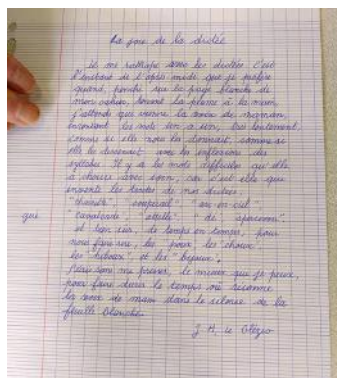 La joie de la dictée
Je me rattrape avec les dictées c'est
l'instant de l'après midi que je préfère
quand, penché sur la page blanche de
mon cahier, tenant la plume à la main,
j'attends que vienne la voix de maman,
inventant les mots un à un, très lentement,
comme si elle nous les donnait, comme si
elle les dessinait avec les inflexions des
syllabes. Il y a les mots difficiles qu'elle
a choisis avec soin, car c'est elle qui
invente les textes de nos dictées:
"charrette", "soupirail" "arc-en-ciel",
que "cavalcade", "attelle" "apercevoir".
et bien sûr, de temps en temps, pour
nous faire rire, les "poux", les "choux",
les "hiboux", et les "bijoux".
J'écris sans me presser, le mieux que je peux,
pour faire durer le temps où résonne
la voix de mam dans le silence de la
feuille blanche.
J. M. le Clézio